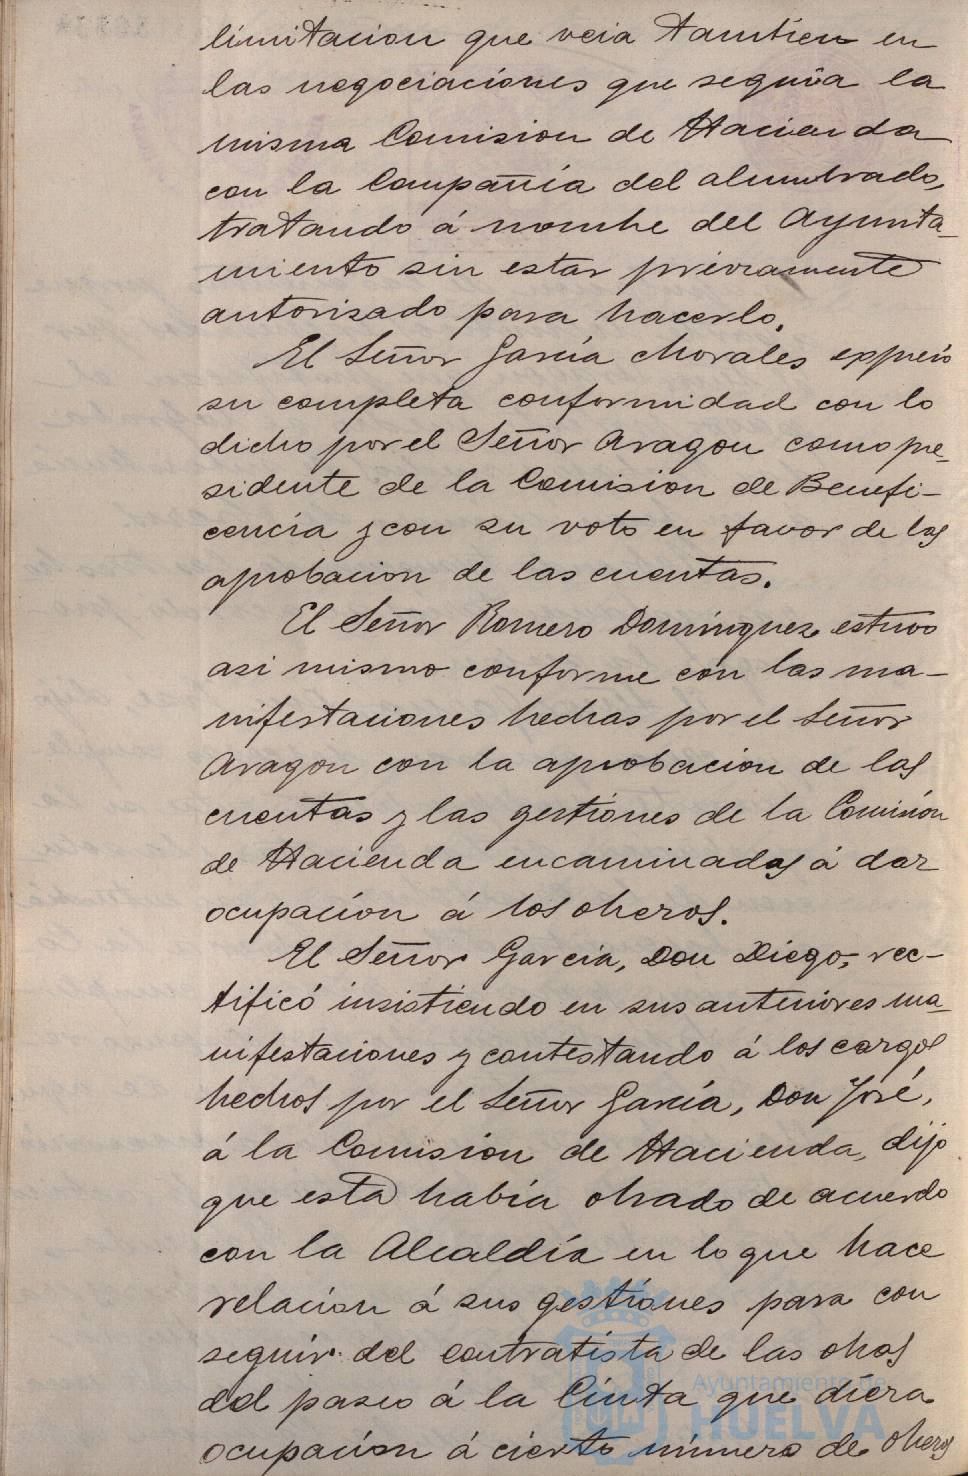 limitacion que veia tambien en
las negociaciones que seguia la
misma Comision de Hacienda
con la Compañía del alumbrado,
tratando á nombre del Ayunta-
miento sin estar préviamente
autorizado para hacerlo.
El Señor García Morales expresó
su completa conformidad con lo
dicho por el Señor Aragon como pre-
sidente de la Comision de Benefi-
cencia y con su voto en favor de la
aprobacion de las cuentas.
El Señor Romero Dominguez estuvo
asi mismo conforme con las ma-
nifestaciones hechas por el Señor
Aragon con la aprobacion de las
cuentas y las gestiones de la Comisión
de Hacienda encaminadas á dar
ocupación á los obreros.
El Señor Garcia, Don Diego, rec-
tificó insistiendo en sus anteriores ma-
nifestaciones y contestando á los cargos
hechos por el Señor García, Don José,
á la Comisión de Hacienda, dijo
que esta había obrado de acuerdo
con la Alcaldía en lo que hace
relación á sus gestiones para con
seguir del contratista de las obras
del paseo á la Cinta que diera
ocupación á cierto número de obreros
Ayuntamiento de
HUELVA